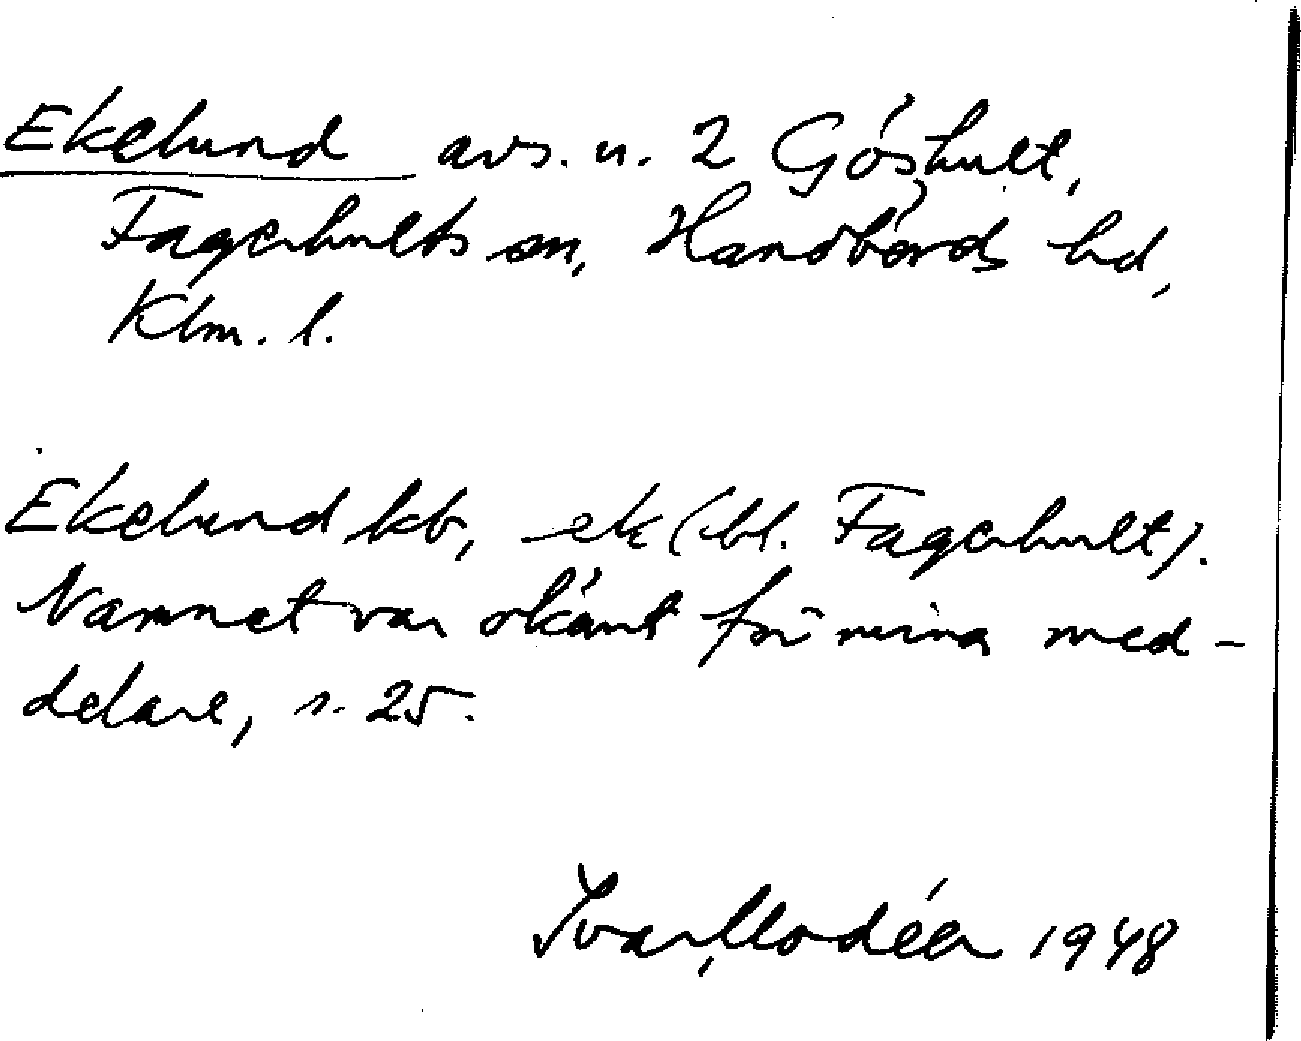 Ekelund avs. u. 2 Göshult,
Fagerhults sn, Handbörds hd,
Klm. l.
Ekelund kb, ek (bl. Fagerhult).
Namnet var okänt för mina med-
delare, s. 25.
Ivar Modéer 1948